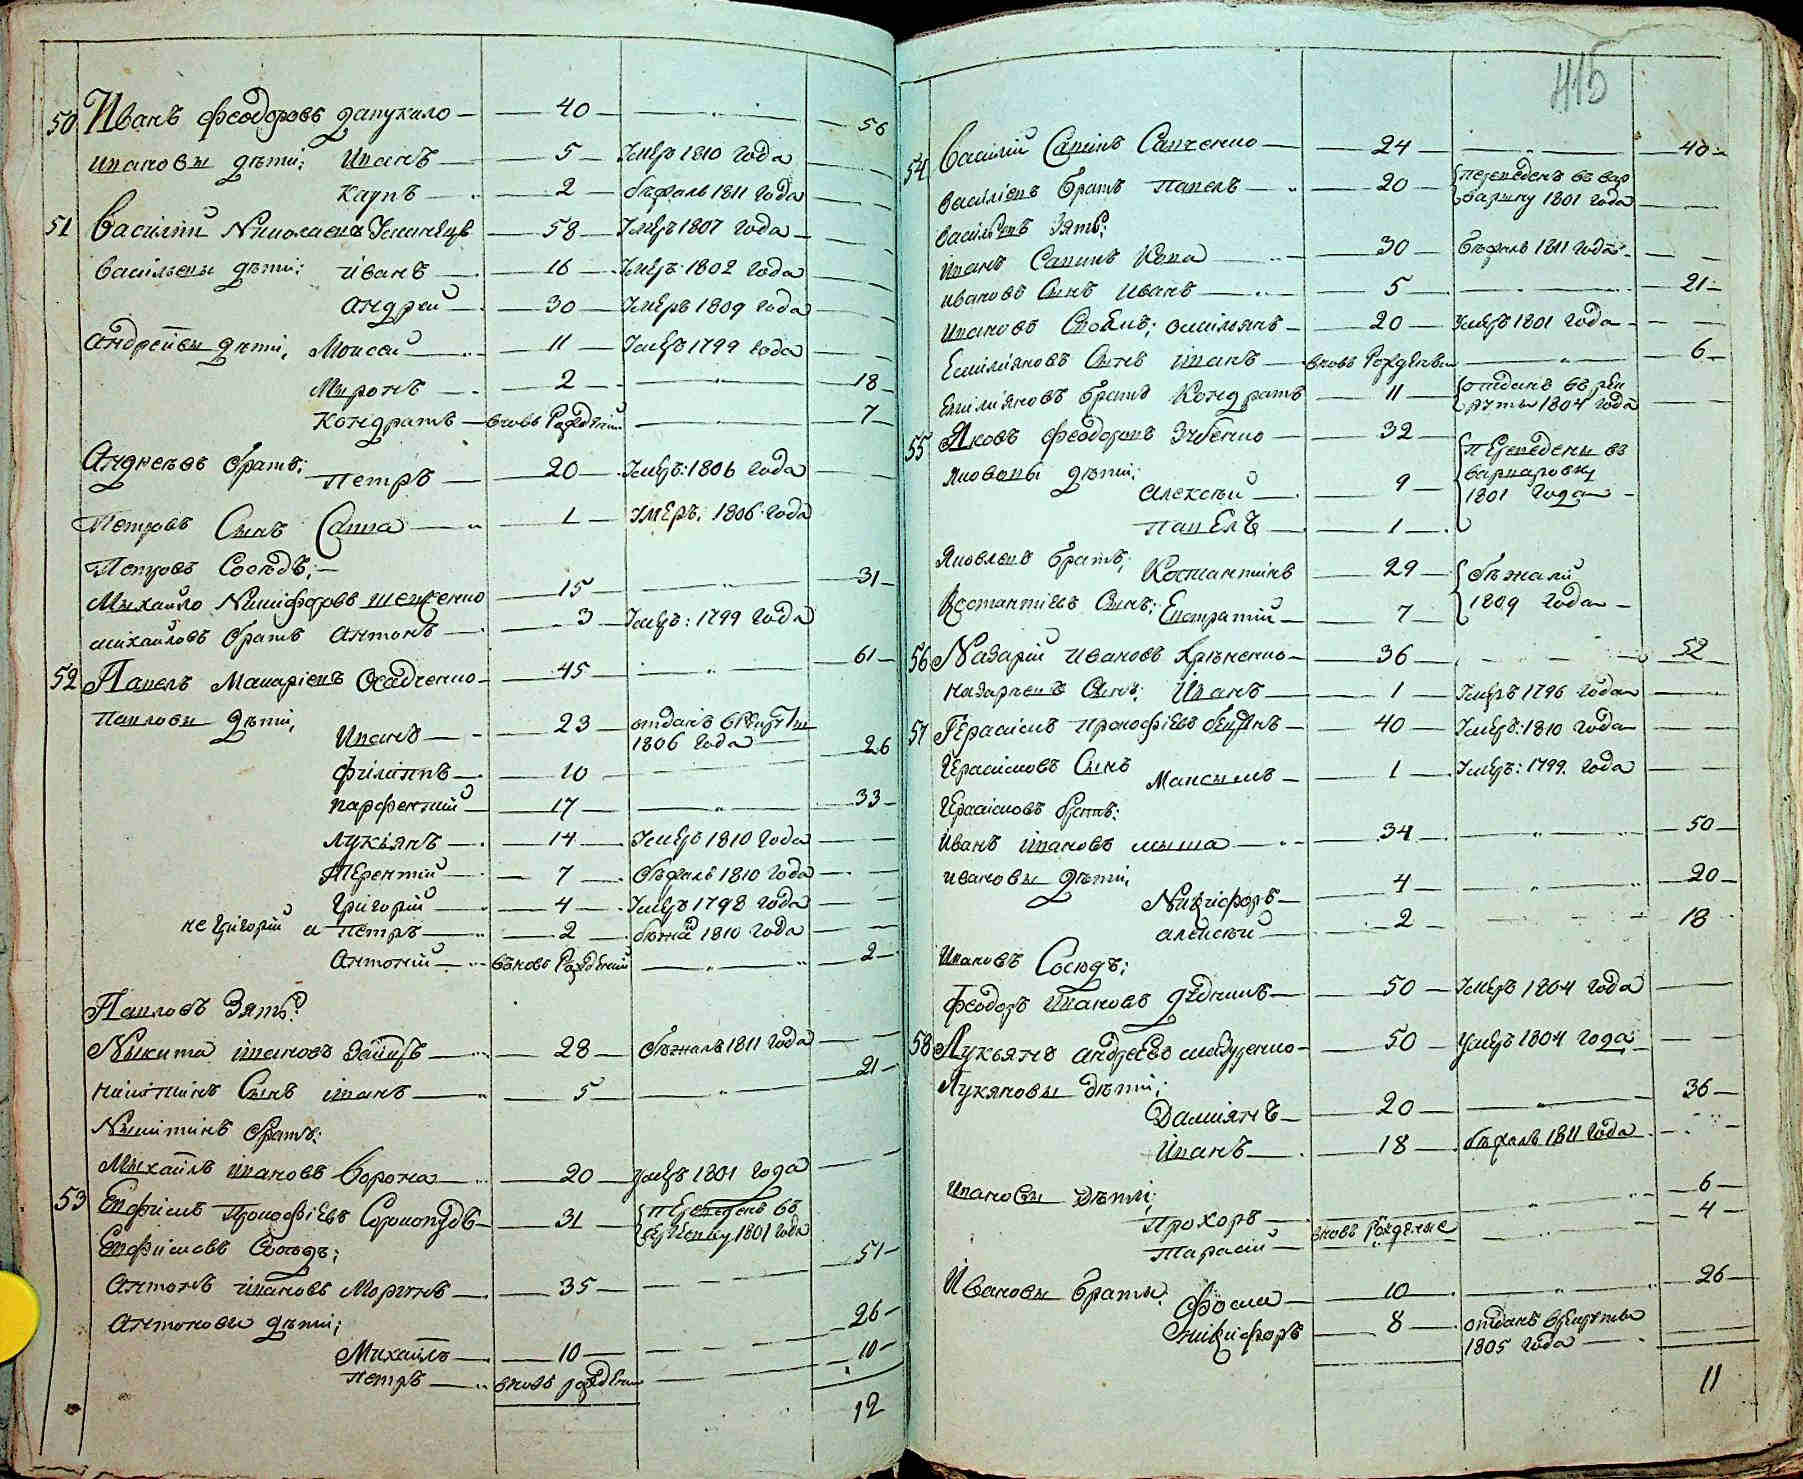 50 Иванъ Феодоровъ Запукало — 40 — 56
Ивановы дѣти; Иванъ — 5 — Умеръ 1810 года
Карпъ — 2 — бѣжалъ 1811 года
51 Василий Николаевъ — 58 — Умеръ 1807 года
Васильевы дѣти: Иванъ — 16 — Умеръ 1802 года
Андрей — 30 — Умеръ 1809 года
Андреевы дѣти, Моисей — 11 — Умеръ 1799 года
Миронъ — 2 — 18
Кондратъ — вновь Рожденный — 7
Андреевъ братъ; Петръ — 20 — Умеръ: 1806 года
Петровъ Сынъ Савва — 1 — Умеръ: 1806 года
Петровъ Сосѣдъ; —
Михайло Никифоровъ Шевченко — 15 — 31
Михайловъ братъ Антонъ — 3 — Умеръ: 1799 года
52 Павелъ Макариевъ Осадченко — 45 — 61
Павловы дѣти, Иванъ — 23 — отданъ в рекруты 1806 года
Филиппъ — 10 — 26
Парфентий — 17 — 33
Лукьянъ — 14 — Умеръ 1810 года
Терентий — 7 — бѣжалъ 1810 года
Григорий — 4 — Умеръ 1798 года
не Григорий а Петръ — 2 — бѣжалъ 1810 года
Антоний — вновь Рожденный — 2
Павловъ Зять:
Никита Ивановъ Заицъ — 28 — бѣжалъ 1811 года
Никитинъ Сынъ Иванъ — 5 — 21
Никитинъ братъ:
Михаилъ Ивановъ Ворона — 20 — умеръ 1801 года
53 Евфимъ Прокофіевъ — 31 — переведенъ въ 1801 года
Евфимовъ Сосѣдъ;
Антонъ Ивановъ — 35 — 51
Антоновы дѣти;
Михаилъ — 10 — 26
Петръ — вновь рожденный — 10
12
415
54 Василий Савинъ Савченко — 24 — 40
Васильевъ братъ Павелъ — 20 — переведенъ въ Варваринку 1801 года
Васильевъ Зять;
Иванъ Савинъ — 30 — бѣжалъ 1811 года
Ивановъ Сынъ Иванъ — 5 — 21
Ивановъ — 20 — Умеръ 1801 года
Емилияновъ Сынъ Иванъ — вновь Рожденный — 6
Емилияновъ братъ Кондратъ — 11 — отданъ въ рекруты 1804 года
55 Яковъ Феодоровъ Зубенко — 32 — переведены въ
Яковлевы дѣти: Алексѣй — 9 — 1801 года —
Павелъ — 1 —
Яковлевъ братъ; Костантинъ — 29 — бѣжали
Костантиновъ Сынъ; Евстратий — 7 — 1809 года —
56 Назарий Ивановъ — 36 — 52
Назариевъ Сынъ: Иванъ — 1 — Умеръ 1796 года
57 Герасимъ Прокофіевъ — 40 — Умеръ: 1810 года
Герасимовъ Сынъ Максимъ — 1 — Умеръ: 1799 года
Герасимовъ братъ:
Иванъ Ивановъ — 34 — 50
Ивановы дѣти, Никифоръ — 4 — 20
Алексѣй — 2 — 18
Ивановъ Сосѣдъ;
Феодоръ Ивановъ — 50 — Умеръ 1804 года
58 Лукьянъ Андреевъ — 50 — умеръ 1804 года
Лукяновы дѣти; Дамиянъ — 20 — 36
Иванъ — 18 — бѣжалъ 1811 года
Ивановы Дѣти; Прохоръ — 6
Тарасий — вновь Рожденные — 4
Ивановы браты: Фома — 10 — 26
Никифоръ — 8 — отданъ в рекруты 1805 года
11